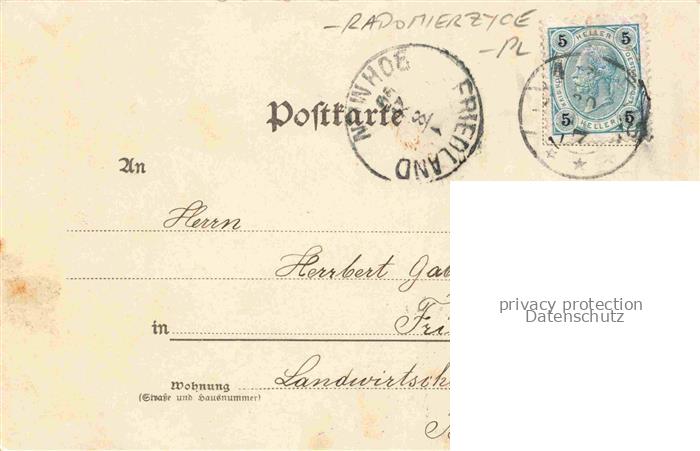 -RADOMIERZYCE
-PL
5 HELLER 5
5 HELLER 5
FRIEDLAND
Postkarte
An
Herrn
Herrbert
in
Fri
Landwirtsch
Wohnung
(Straße und Hausnummer)
privacy protection
Datenschutz